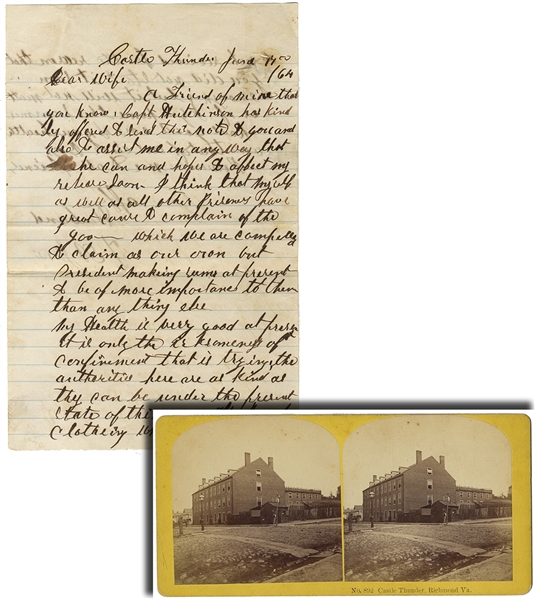 Castle Thunder June 17th
Dear Wife /64
A Friend of mine that
you know Capt Hutchinson has kind
ly offered to send this note to you and
also to assist me in any way that
he can and hopes to affect my
release soon. I think that myself
as well as all other Prisoners have
great cause to complain of the
gov which we are compelled
to claim as our own but
President making seems at present
to be of more importance to them
than any thing else
My Health is very good at present
it is only the irksomeness of
confinement that is trying, the
authorities here are as kind as
they can be under the present
state of
clothing
No. 892 Castle Thunder, Richmond Va.